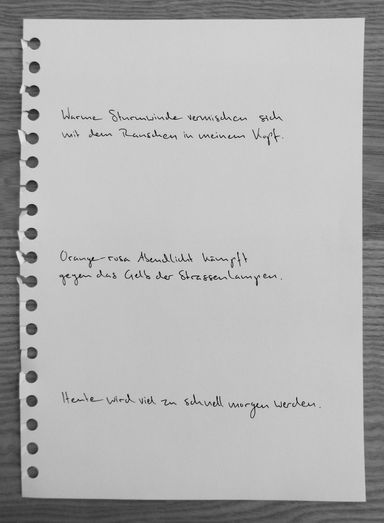 Warme Sturmwinde vermischen sich
mit dem Rauschen in meinem Kopf.
Orange-rosa Abendlicht kämpft
gegen das Gelb der Strassenlampen.
Heute wird viel zu schnell morgen werden.